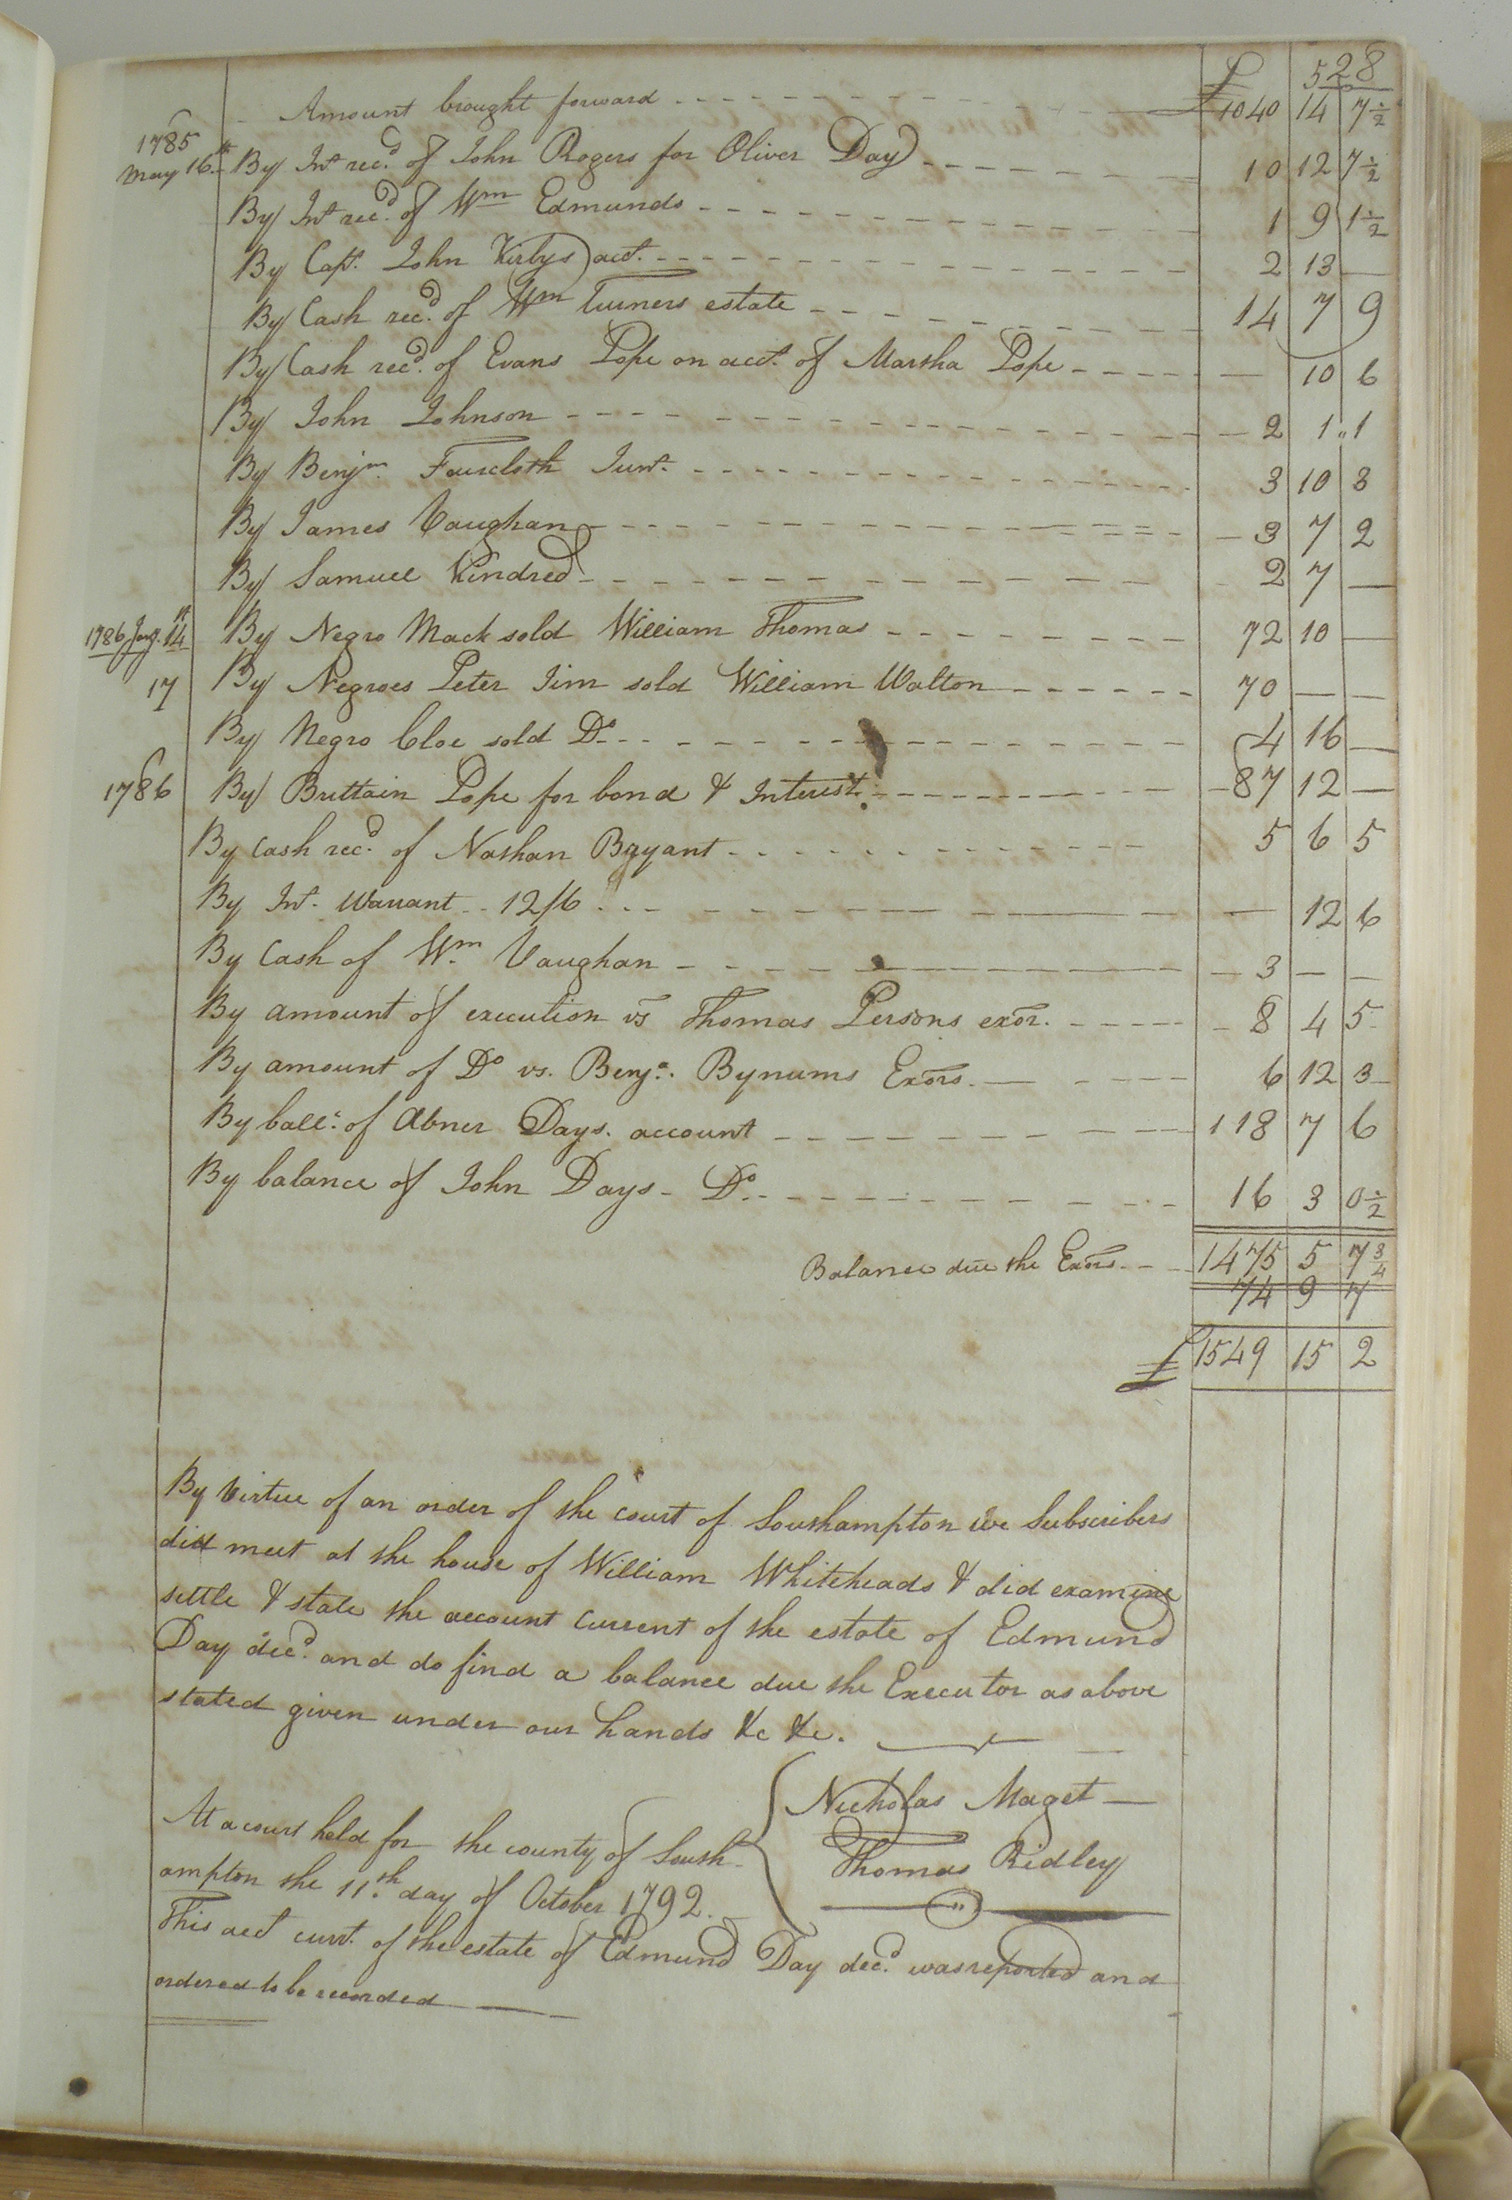 528
Amount brought forward £ 1040 14 7 1/2
1785
May 16th By Int rec.d of John Rogers for Oliver Day 10 12 7 1/2
By Int rec.d of Wm Edmunds 1 9 1 1/2
By Capt. John Kirbys acct. 2 13 —
By Cash rec.d of Wm Turners estate 14 7 9
By Cash rec.d of Evans Pope on acct. of Martha Pope — 10 6
By John Johnson 2 1 1
By Benjm. Faircloth Junr. 3 10 3
By James Vaughan 3 7 2
By Samuel Kindred 2 7 —
1786 Jany. 14th By Negro Mack sold William Thomas 72 10 —
17 By Negroes Peter Jim sold William Walton 70 — —
By Negro Cloe sold Do. 4 16 —
1786 By Brittain Pope for bond & Interest 87 12 —
By Cash rec.d of Nathan Bryant 5 6 5
By Int. Warrant 12/6 — 12 6
By Cash of Wm. Vaughan 3 — —
By amount of execution vs Thomas Persons exor. 8 4 5
By amount of Do vs. Benja. Bynums Exors. 6 12 3
By ball: of Abner Days. account 118 7 6
By balance of John Days Do. 16 3 0 1/2
1475 5 7 3/4
Balance due the Exors. 74 9 7
£ 1549 15 2
By Virtue of an order of the court of Southampton we Subscribers
did meet at the house of William Whiteheads & did examine
settle & state the account current of the estate of Edmund
Day dec.d and do find a balance due the Executor as above
stated given under our hands &c &c.
Nicholas Maget
Thomas Ridley
At a court held for the county of South
ampton the 11th day of October 1792.
This acct curt. of the estate of Edmund Day dec.d was reported and
ordered to be recorded